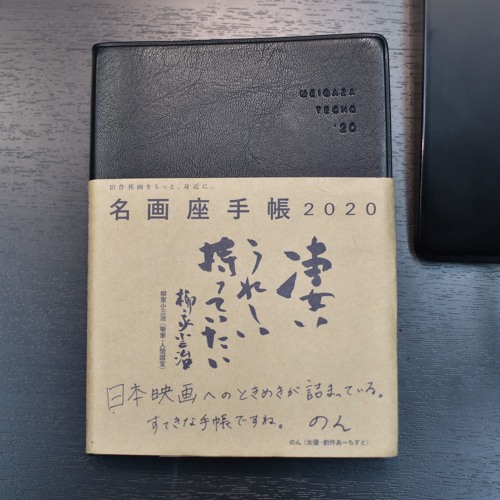 MEIGAZA
TECHO
'20
旧作邦画をもっと、身近に。
名画座手帳2020
凄い
うれしい
持っていたい
柳家小三治
柳家小三治(噺家・人間国宝)
日本映画へのときめきが詰まっている。
すてきな手帳ですね。 のん
のん(女優・創作あーちすと)